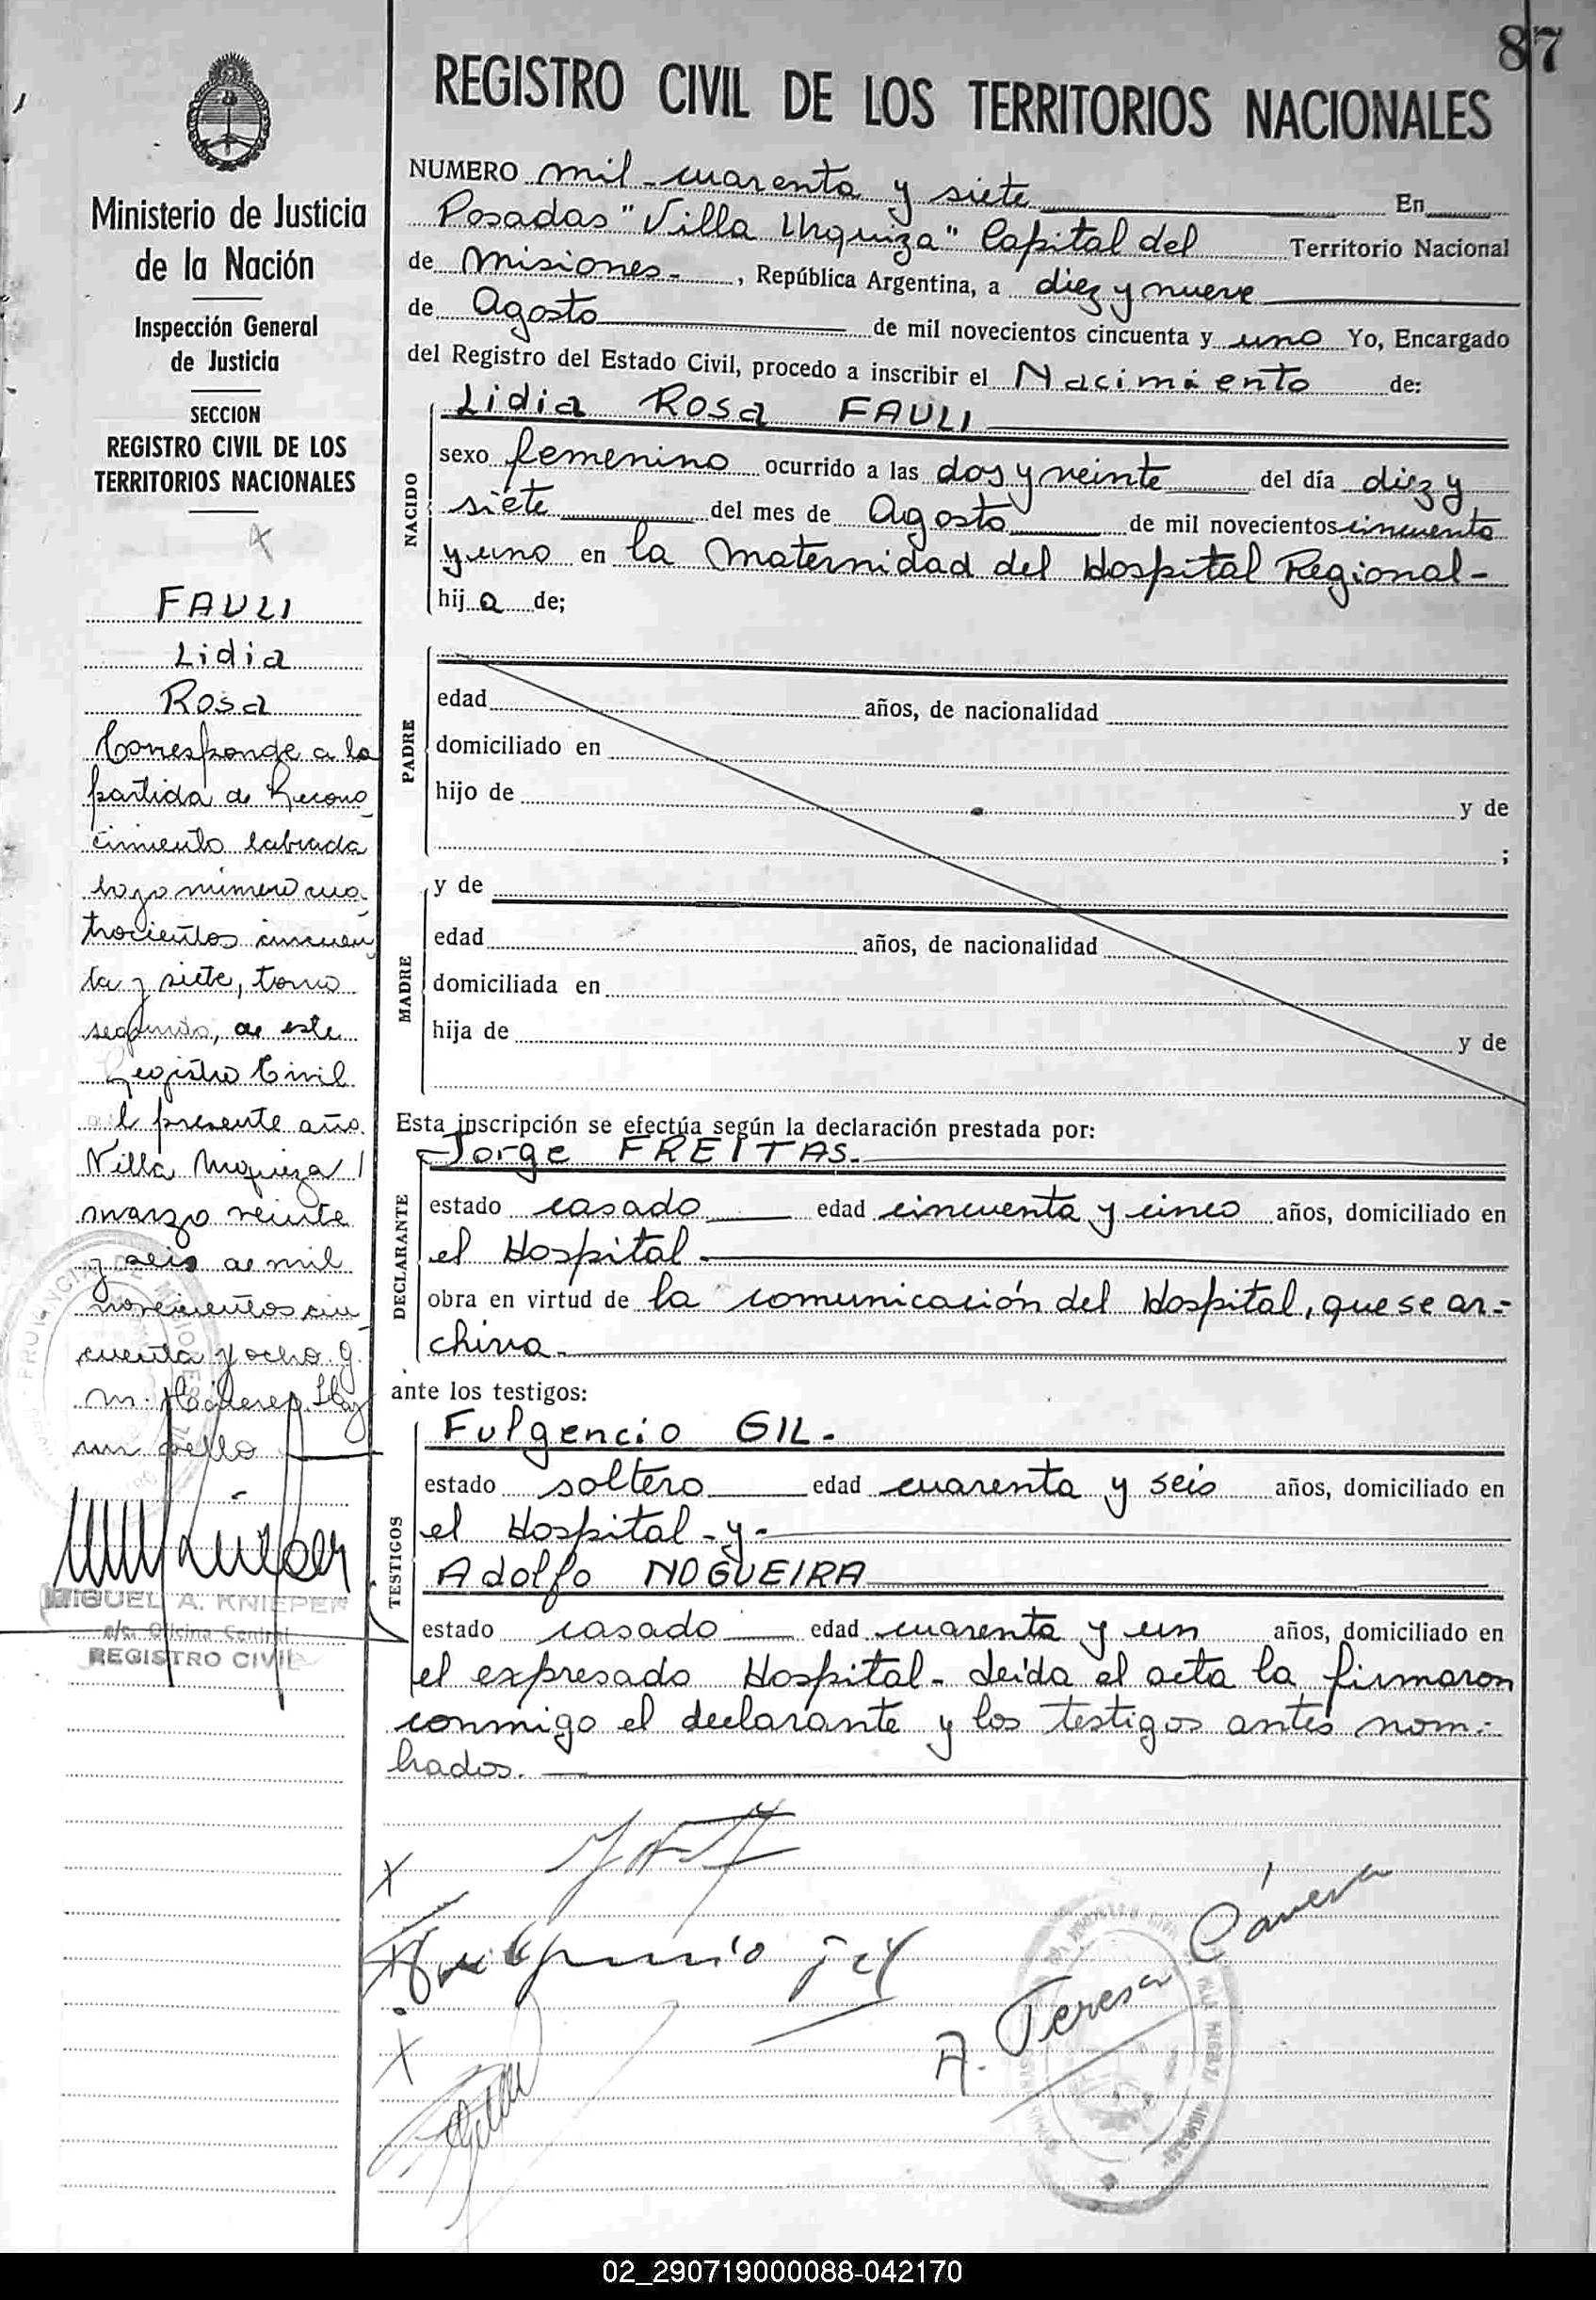 87
REGISTRO CIVIL DE LOS TERRITORIOS NACIONALES
Ministerio de Justicia
de la Nación
Inspección General
de Justicia
SECCION
REGISTRO CIVIL DE LOS
TERRITORIOS NACIONALES
FAULI
Lidia
Rosa
Corresponde a la
partida de Recono
cimiento labrada
bajo número cua
trocientos cincuen
ta y siete, tomo
segundo, de este
Registro Civil
del presente año.
Villa Urquiza,
marzo veinte
y seis de mil
novecientos cin
cuenta y ocho. g.
m. Hay
un sello
MIGUEL A. KNIEPER
e/c. Oficina Central
REGISTRO CIVIL
NUMERO mil cuarenta y siete En
Posadas "Villa Urquiza" Capital del Territorio Nacional
de Misiones-, República Argentina, a diez y nueve
de Agosto de mil novecientos cincuenta y uno Yo, Encargado
del Registro del Estado Civil, procedo a inscribir el Nacimiento de:
NACIDO
Lidia Rosa FAULI
sexo femenino ocurrido a las dos y veinte del día diez y
siete del mes de Agosto de mil novecientos cincuenta
y uno en la Maternidad del Hospital Regional-
hija de;
PADRE
edad años, de nacionalidad
domiciliado en
hijo de y de
;
MADRE
y de
edad años, de nacionalidad
domiciliada en
hija de y de
Esta inscripción se efectúa según la declaración prestada por:
DECLARANTE
Jorge FREITAS.
estado casado edad cincuenta y cinco años, domiciliado en
el Hospital-
obra en virtud de la comunicación del Hospital, que se ar-
chiva-
ante los testigos:
TESTIGOS
Fulgencio GIL.
estado soltero edad cuarenta y seis años, domiciliado en
el Hospital-y-
Adolfo NOGUEIRA
estado casado edad cuarenta y un años, domiciliado en
el expresado Hospital- Leída el acta la firmaron
conmigo el declarante y los testigos antes nom-
brados.
Fulgencio Gil
A. Teresa Cánera
02_290719000088-042170